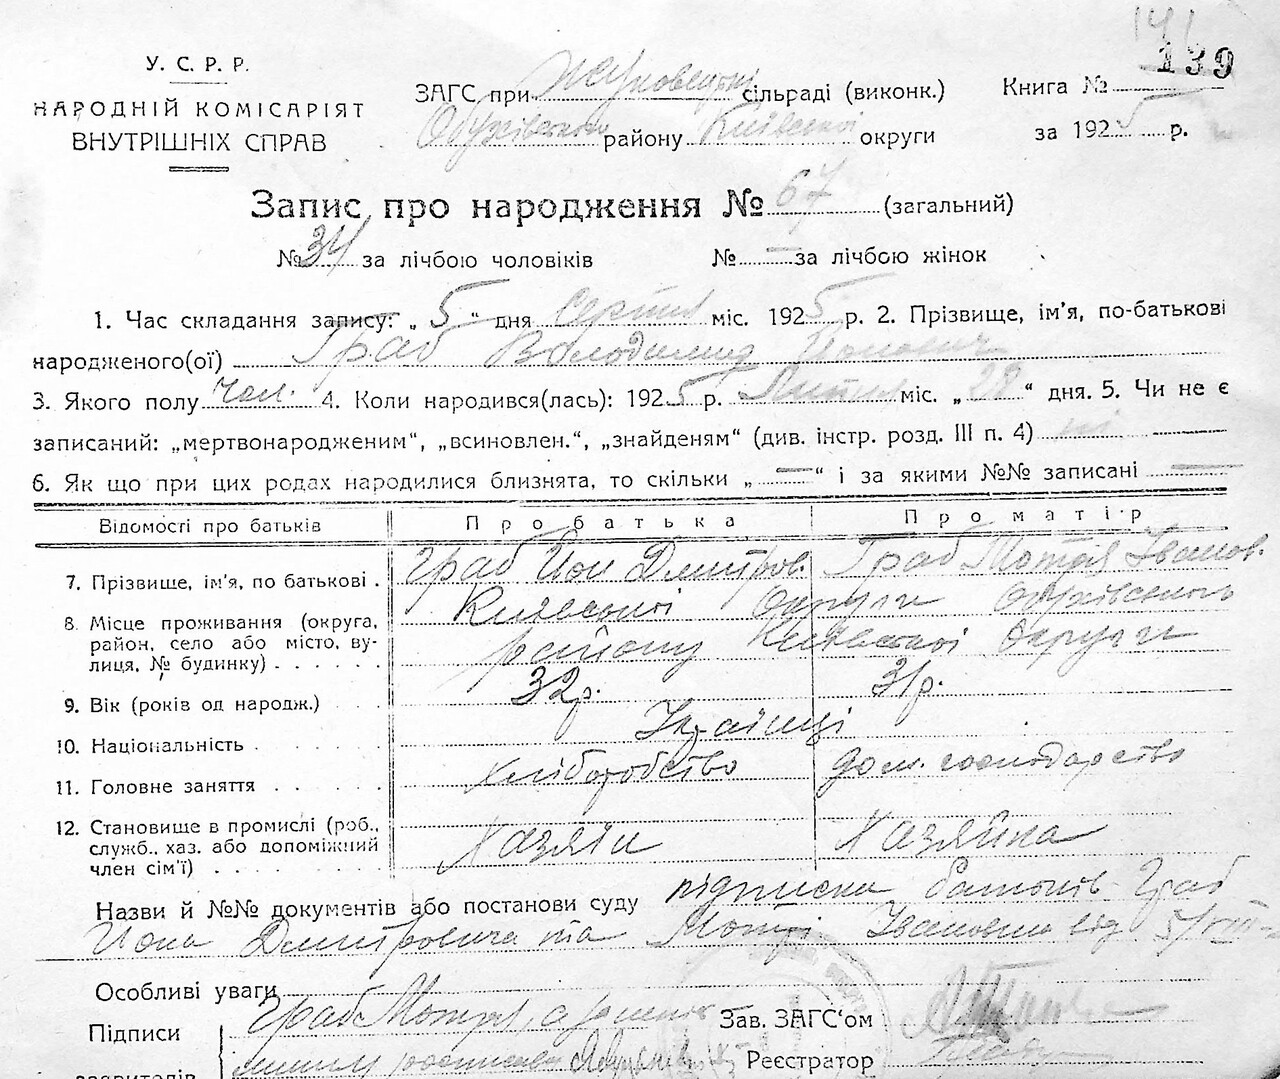 141
139
У. С. Р. Р.
НАРОДНІЙ КОМІСАРІЯТ
ВНУТРІШНІХ СПРАВ
ЗАГС при сільраді (виконк.)
Обухівського району Київської округи
Книга №
за 1925 р.
Запис про народження № 67 (загальний)
№ 34 за лічбою чоловіків № — за лічбою жінок
1. Час складання запису: „ 5 “ дня Серпня міс. 1925 р. 2. Прізвище, ім'я, по-батькові
народженого(ої) Граб Володимир Йонович
3. Якого полу чол. 4. Коли народився(лась): 1925 р. Липня міс. „ 28 “ дня. 5. Чи не є
записаний: „мертвонародженим“, „всиновлен.“, „знайденям“ (див. інстр. розд. III п. 4) ні
6. Як що при цих родах народилися близнята, то скільки „ — “ і за якими №№ записані —
Відомості про батьків Про батька Про матір
7. Прізвище, ім'я, по батькові . Граб Йон Дмитров. Граб Мотря Іванов.
8. Місце проживання (округа, район, село або місто, вулиця, № будинку) . . . . . . Київської Округи Обухівського
району Київської Округи
9. Вік (років од народж.) 32 р. 31 р.
10. Національність . Українці
11. Головне заняття . . . . . . хліборобство дом. господарство
12. Становище в промислі (роб., служб., хаз. або допоміжний член сім'ї) . . . . . . Хазяїн Хазяйка
Назви й №№ документів або постанови суду підписка батьків Граб
Йона Дмитровича та Мотрі Іванівни від 5/VIII
Особливі уваги
Підписи Граб Мотря, а
заявителів
Зав. ЗАГС'ом
Реєстратор